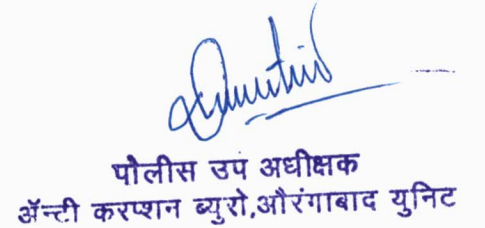 पोलीस उप अधीक्षक
ॲन्टी करप्शन ब्युरो,औरंगाबाद युनिट